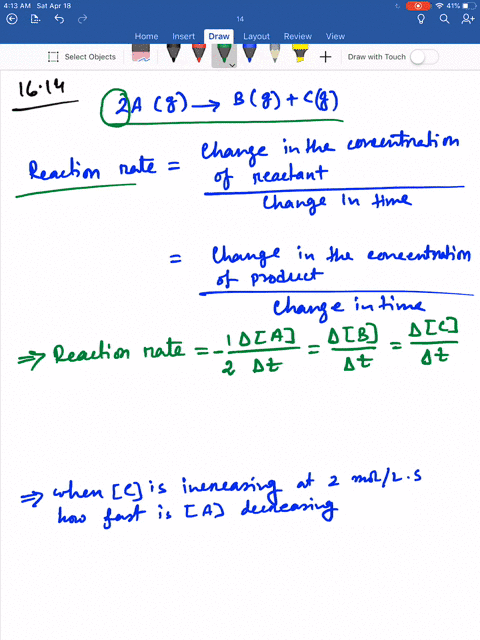 4:13 AM Sat Apr 18
41%
14
Home Insert Draw Layout Review View
Select Objects
Draw with Touch
16.14
2A (g) → B(g) + C(g)
Reaction rate = Change in the concentration
of reactant
Change in time
= Change in the concentration
of product
Change in time
⇒ Reaction rate = -1/2 Δ[A]/Δt = Δ[B]/Δt = Δ[C]/Δt
⇒ when [C] is increasing at 2 mol/L.s
how fast is [A] decreasing